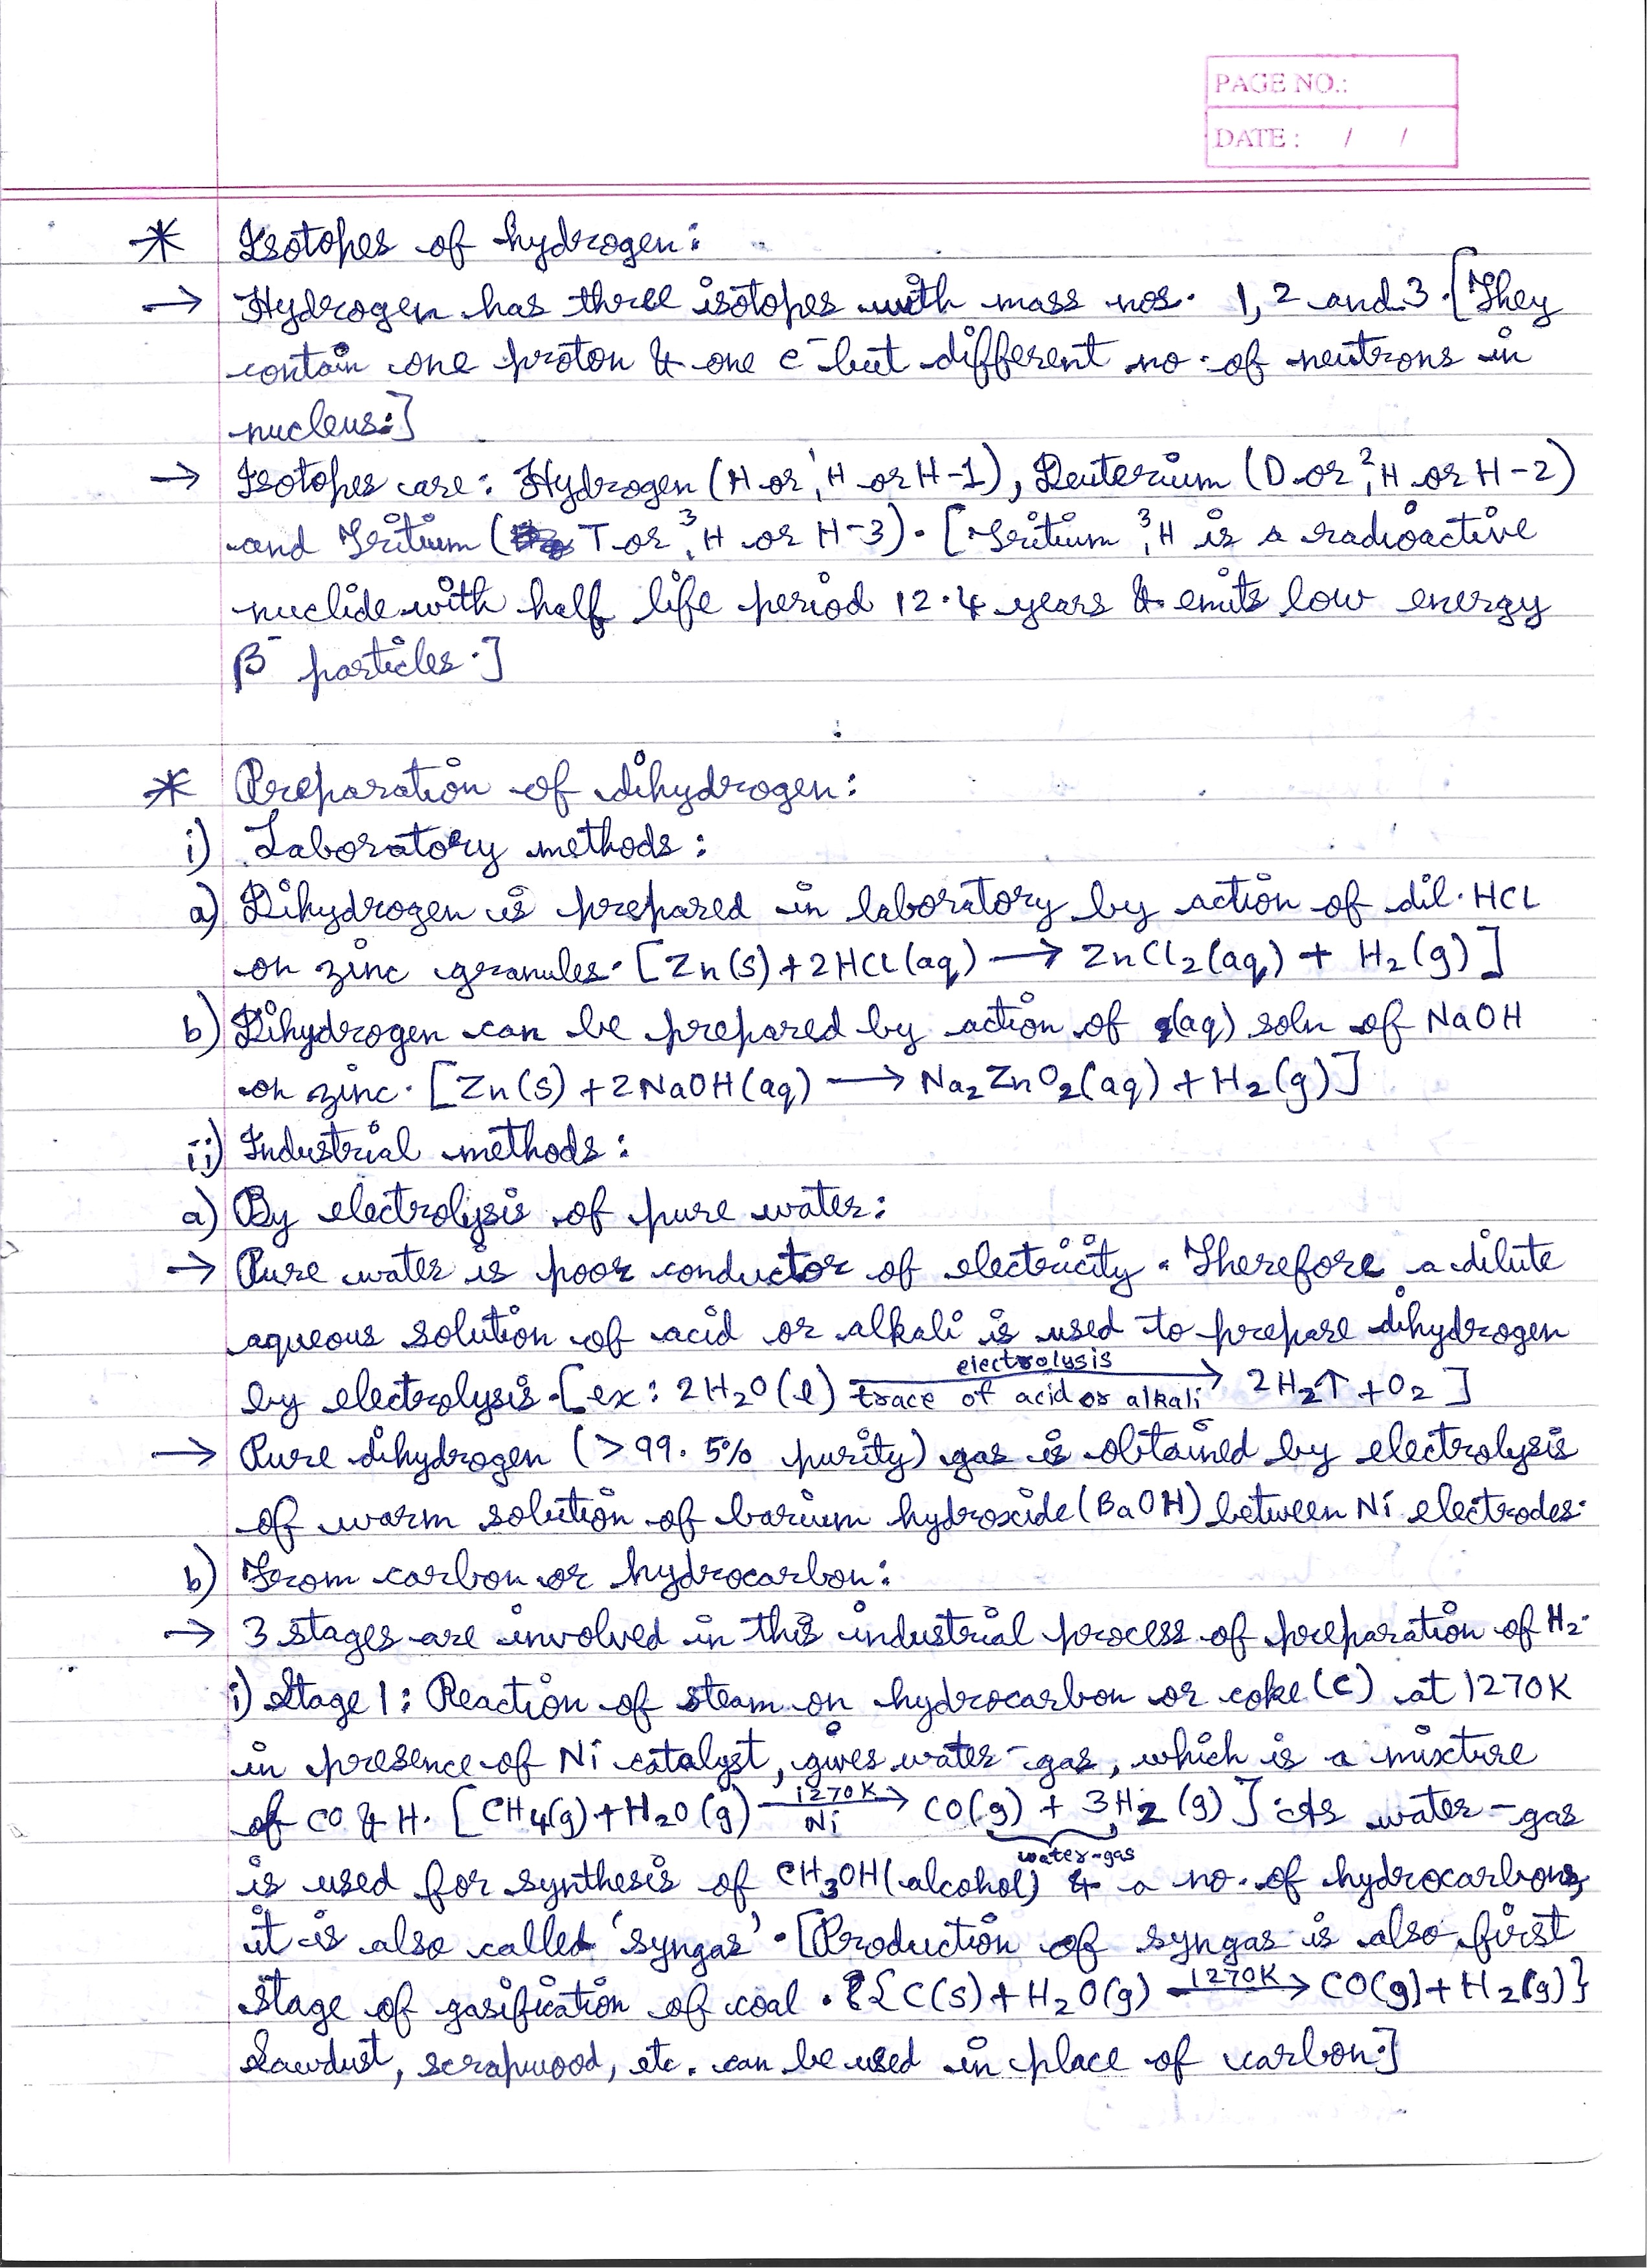 PAGE NO.:
DATE : / /
* Isotopes of hydrogen:
→ Hydrogen has three isotopes with mass nos. 1, 2 and 3. [They
contain one proton & one e⁻ but different no. of neutrons in
nucleus.]
→ Isotopes are: Hydrogen (H or ¹₁H or H-1), Deuterium (D or ²₁H or H-2)
and Tritium (T or ³₁H or H-3). [Tritium ³₁H is a radioactive
nuclide with half life period 12.4 years & emits low energy
β⁻ particles.]
* Preparation of dihydrogen:
i) Laboratory methods:
a) Dihydrogen is prepared in laboratory by action of dil. HCl
on zinc granules. [Zn(s) + 2HCl(aq) → ZnCl₂(aq) + H₂(g)]
b) Dihydrogen can be prepared by action of (aq) soln of NaOH
on zinc. [Zn(s) + 2NaOH(aq) → Na₂ZnO₂(aq) + H₂(g)]
ii) Industrial methods:
a) By electrolysis of pure water:
→ Pure water is poor conductor of electricity. Therefore a dilute
aqueous solution of acid or alkali is used to prepare dihydrogen
by electrolysis. [ex: 2H₂O(l) electrolysis → trace of acid or alkali 2H₂↑ + O₂]
→ Pure dihydrogen (>99.5% purity) gas is obtained by electrolysis
of warm solution of barium hydroxide (BaOH) between Ni electrodes.
b) From carbon or hydrocarbon:
→ 3 stages are involved in this industrial process of preparation of H₂.
i) Stage 1: Reaction of steam on hydrocarbon or coke (C) at 1270K
in presence of Ni catalyst, gives water-gas, which is a mixture
of CO & H. [CH₄(g) + H₂O(g) 1270K → Ni CO(g) + 3H₂(g)]. As water-gas
water-gas
is used for synthesis of CH₃OH (alcohol) & a no. of hydrocarbons,
it is also called 'syngas'. [Production of syngas is also first
stage of gasification of coal. {C(s) + H₂O(g) 1270K → CO(g) + H₂(g)}
Sawdust, scrapwood, etc. can be used in place of carbon.]